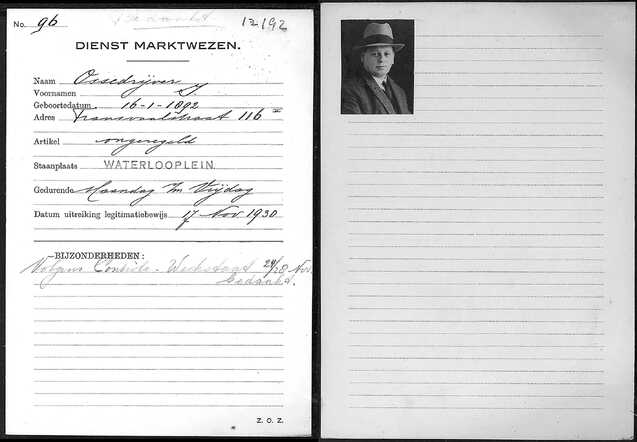 No. 96
Bedankt
12192
DIENST MARKTWEZEN.
Naam Ossedrijver
Voornamen J.
Geboortedatum 16-1-1892
Adres Transvaalstraat 116 II
Artikel ongeregeld
Staanplaats WATERLOOPLEIN.
Gedurende Maandag t/m Vrijdag
Datum uitreiking legitimatiebewijs 17 Nov 1930
—BIJZONDERHEDEN:
Volgens Controle - Weekstaat 24/28 Nov.
bedankt.
Z. O. Z.